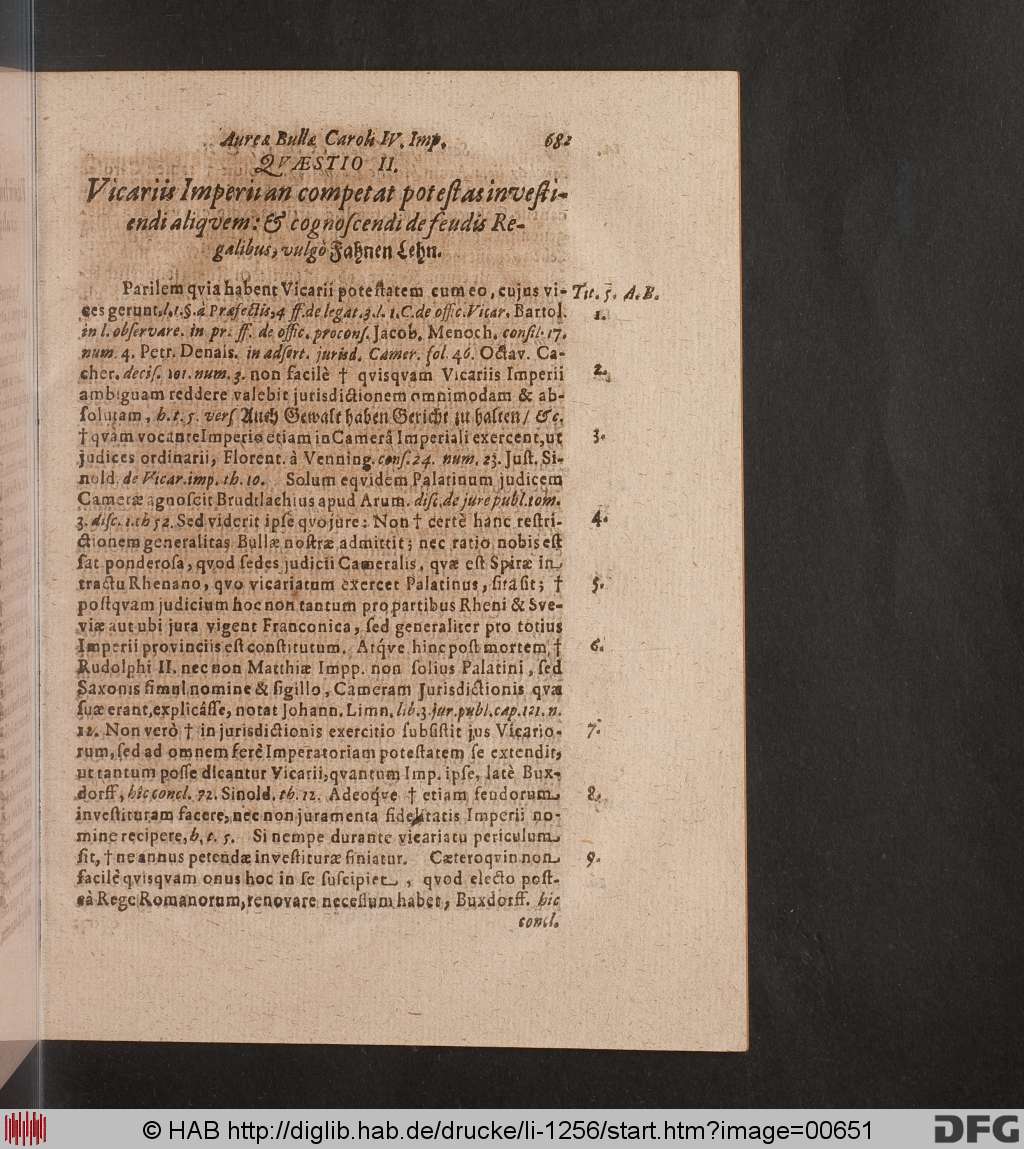 Aureæ Bullæ Caroli IV. Imp. 682
QVÆSTIO II.
Vicariis Imperii an competat potestas investi-
endi aliqvem: & cognoscendi de feudis Re-
galibus, vulgò Fahnen Lehn.
Parilem qvia habent Vicarii potestatem cum eo, cujus vi- Tit. 5. A.B.
ces gerunt, l. 1. §. à Præfectis, 4 ff. de legat. 3. l. 1. C. de offic. Vicar. Bartol. 1.
in l. observare. in pr. ff. de offic. proconf. Jacob. Menoch. consil. 17.
num. 4. Petr. Denais. in adsert. jurisd. Camer. fol. 46. Octav. Ca-
cher. decis. 101. num. 3. non facilè † qvisqvam Vicariis Imperii 2.
ambiguam reddere valebit jurisdictionem omnimodam & ab-
solutam, h. t. 5. vers Auch Gewalt haben Gericht zu halten / &c.
† qvam vocante Imperio etiam in Camerâ Imperiali exercent, ut 3.
judices ordinarii, Florent. à Venning. cons. 24. num. 23. Just. Si-
nold. de Vicar. imp. th. 10. Solum eqvidem Palatinum judicem
Cameræ agnoscit Brudtlachius apud Arum. disc. de jure publ. tom.
3. disc. 1. th 52. Sed viderit ipse qvo jure: Non † certè hanc restri- 4.
ctionem generalitas Bullæ nostræ admittit; nec ratio nobis est
sat ponderosa, qvod sedes judicii Cameralis, qvæ est Spiræ in
tractu Rhenano, qvo vicariatum exercet Palatinus, sita sit; † 5.
postqvam judicium hoc non tantum pro partibus Rheni & Sve-
viæ aut ubi jura vigent Franconica, sed generaliter pro totius
Imperii provinciis est constitutum. Atq́ve hinc post mortem † 6.
Rudolphi II. nec non Matthiæ Impp. non solius Palatini, sed
Saxonis simul nomine & sigillo, Cameram Jurisdictionis qvæ
suæ erant, explicâsse, notat Johann. Limn. lib. 3. jur. publ. cap. 121. n.
12. Non verò † in jurisdictionis exercitio subsistit jus Vicario- 7.
rum, sed ad omnem ferè Imperatoriam potestatem se extendit,
ut tantum posse dicantur Vicarii, qvantum Imp. ipse, latè Bux-
dorff, hic concl. 72. Sinold. th. 12. Adeoq́ve † etiam feudorum 8.
investituram facere, nec non juramenta fidelitatis Imperii no-
mine recipere, h. t. 5. Si nempe durante vicariatu periculum
sit, † ne annus petendæ investituræ finiatur. Cæteroqvin non 9.
facilè qvisqvam onus hoc in se suscipiet, qvod electo post-
eà Rege Romanorum, renovare necessum habet, Buxdorff. hic
concl.
© HAB http://diglib.hab.de/drucke/li-1256/start.htm?image=00651
DFG